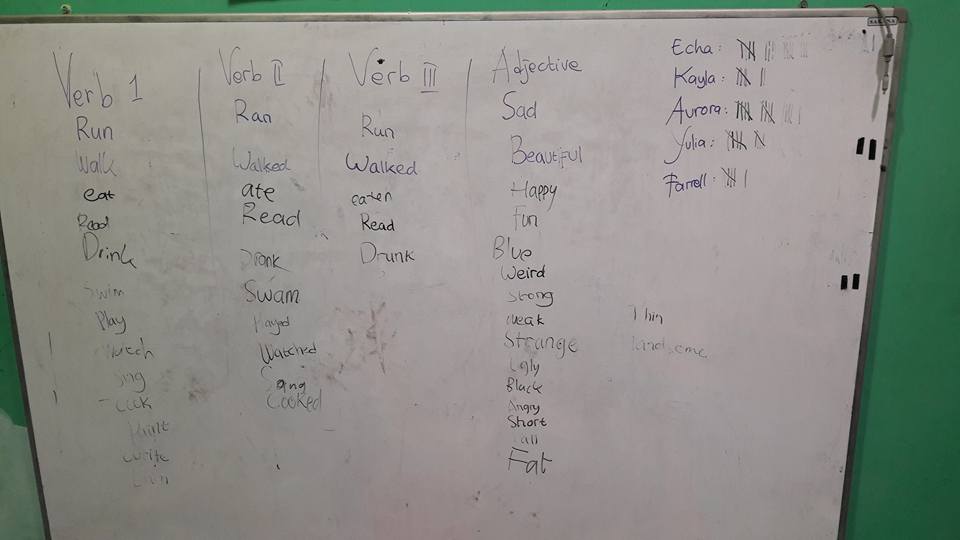 Verb 1
Run
Walk
eat
Read
Drink
Swim
Play
Watch
Sing
Cook
Paint
Write
Verb II
Ran
Walked
ate
Read
Drank
Swam
Played
Watched
Sang
Cooked
Verb III
Run
Walked
eaten
Read
Drunk
Adjective
Sad
Beautiful
Happy
Fun
Blue
Weird
Strong
Weak
Strange
Ugly
Black
Angry
Short
Tall
Fat
Thin
Handsome
Echa:
Kayla:
Aurora:
Yulia:
Farrell: